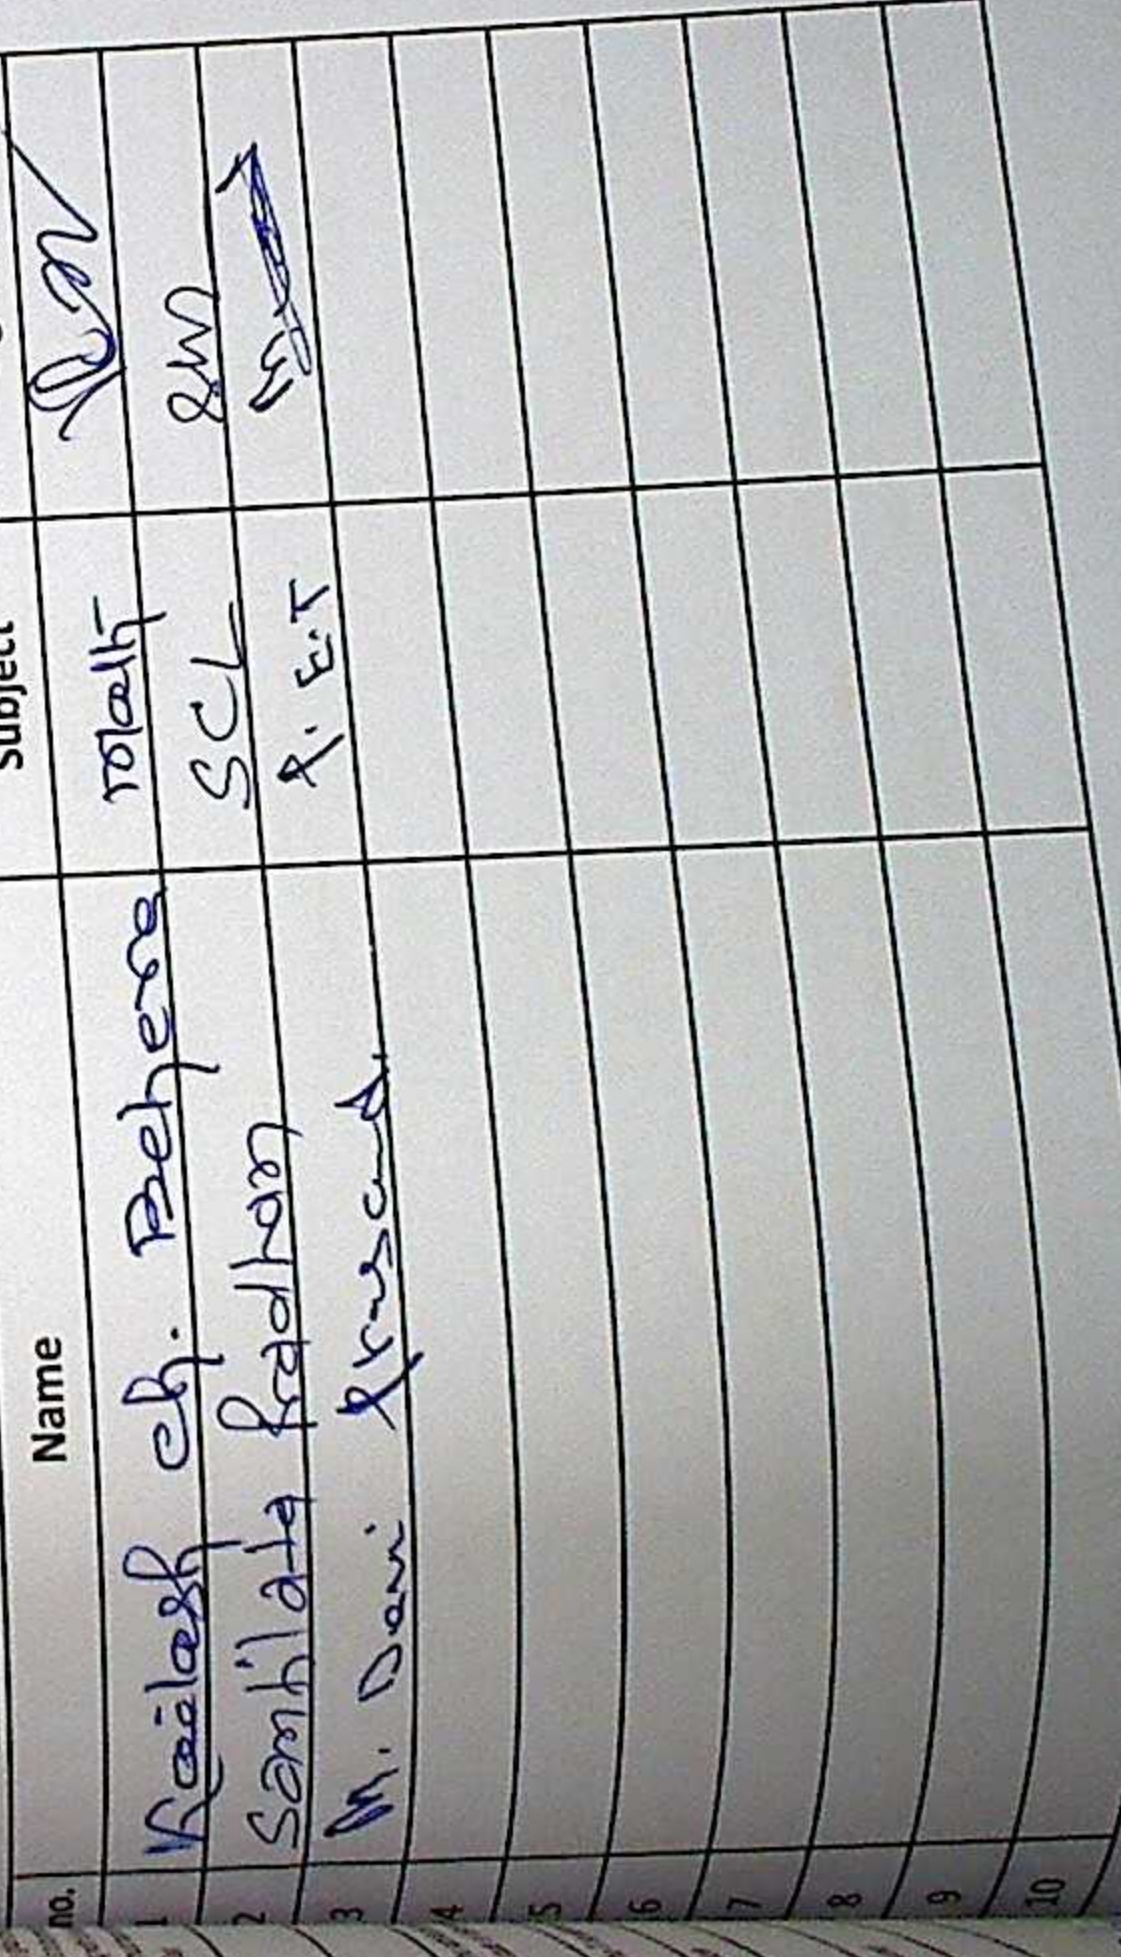 no. Name Subject
1 Kailash ch. Behera math
2 Sanhilata Pradhan SCL
3 M. Dani Prusand. P.E.T
4
5
6
7
8
9
10